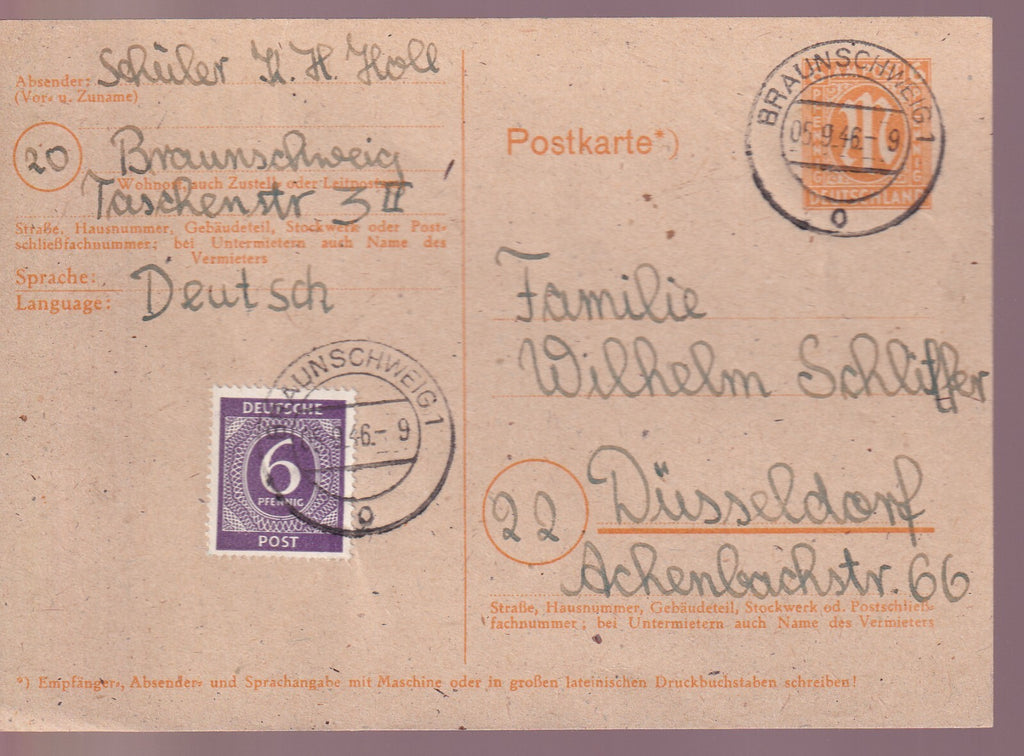 Schüler K. H. Holl
Absender:
(Vor- u. Zuname)
20 Braunschweig
Wohnort, auch Zustell- oder Leitpostamt
Taschenstr 3 II
Straße, Hausnummer, Gebäudeteil, Stockwerk oder Post-
schließfachnummer; bei Untermietern auch Name des
Vermieters
Sprache:
Language:
Deutsch
DEUTSCHE
6
PFENNIG
POST
BRAUNSCHWEIG 1
46.- 9
o
Postkarte*)
BRAUNSCHWEIG 1
05.9.46.- 9
o
DEUTSCHLAND
Familie
Wilhelm Schliffer
22 Düsseldorf
Achenbachstr. 66
Straße, Hausnummer, Gebäudeteil, Stockwerk od. Postschließ-
fachnummer; bei Untermietern auch Name des Vermieters
*) Empfänger-, Absender- und Sprachangabe mit Maschine oder in großen lateinischen Druckbuchstaben schreiben!